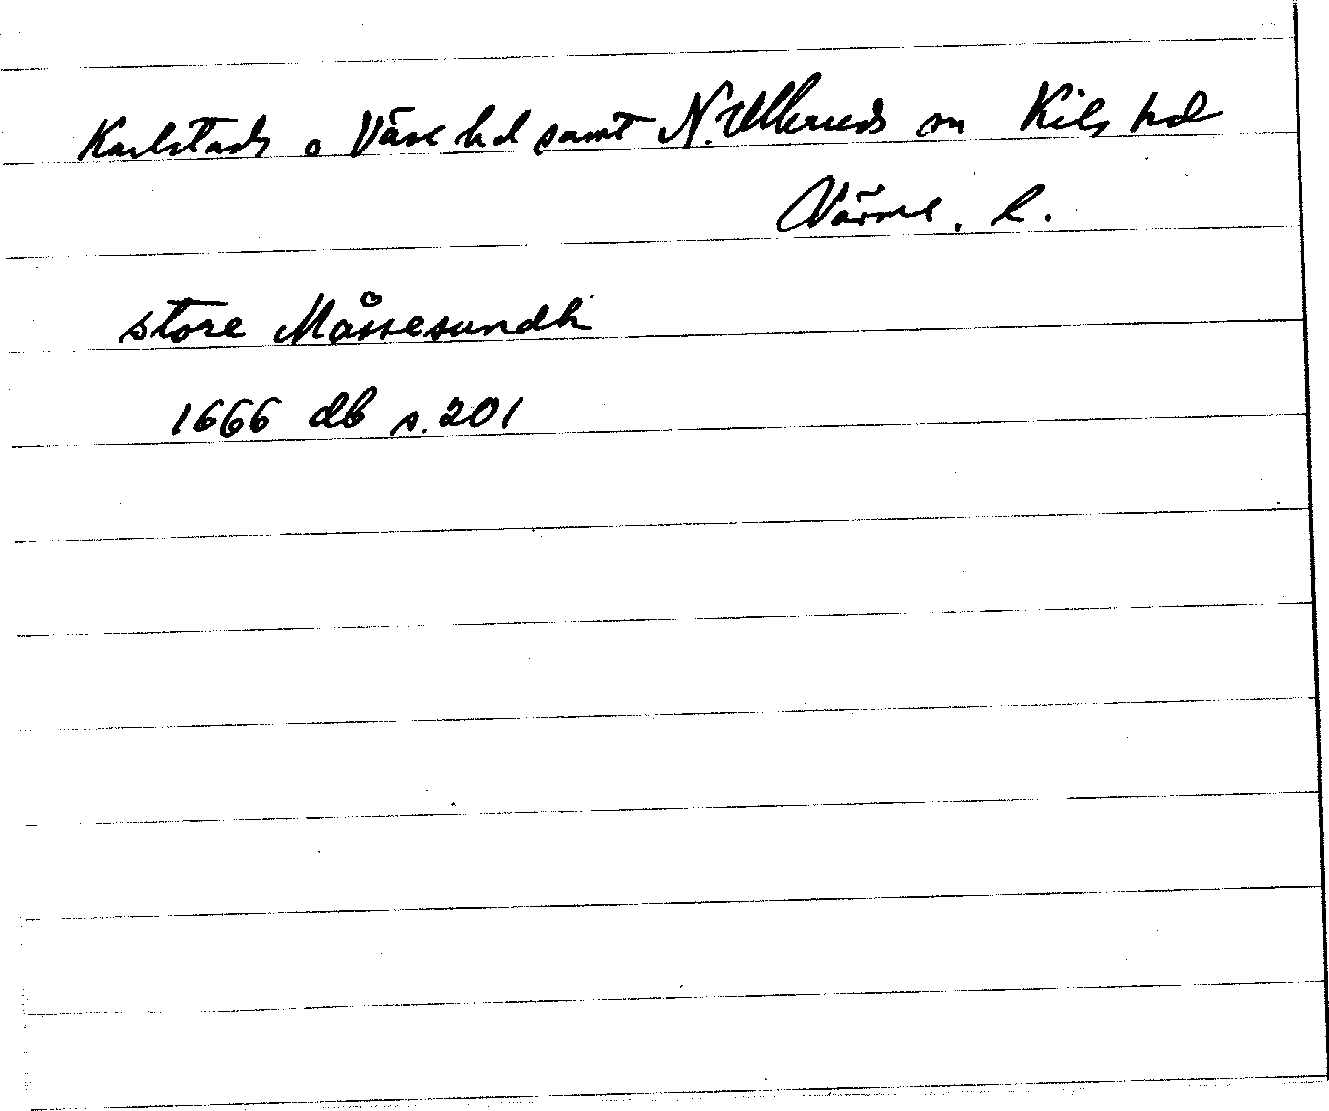 Karlstads o Väse hd samt N. Ulleruds sn Kils hd
Värml. l.
store Måssesundh
1666 db s. 201